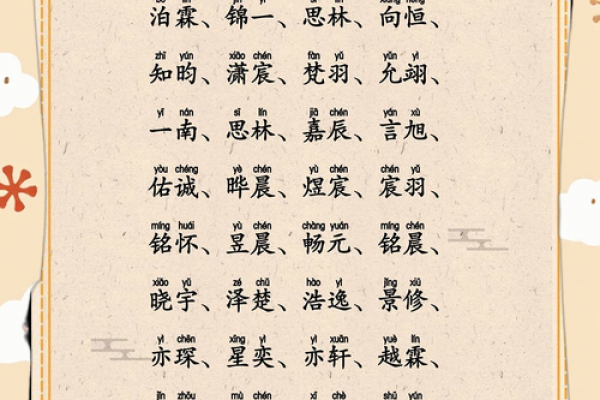 泊霖、锦一、思林、向恒、
zhī yún xiāo chén fàn yǔ yǔn yì
知昀、潇宸、梵羽、允翊、
yī nán sī lín jiā chén yán xù
一南、思林、嘉辰、言旭、
yòu chéng yè chén yù chén chén yǔ
佑诚、晔晨、煜宸、宸羽、
míng huái yù chén chàng yuán míng chén
铭怀、昱晨、畅元、铭晨、
xiǎo yǔ zé chǔ hào yì jǐng xiū
晓宇、泽楚、浩逸、景修、
yì chēn xīng yì yì xuān yuè lín
亦琛、星奕、亦轩、越霖、
jǐn zhōu mù chén xī chè shū yún